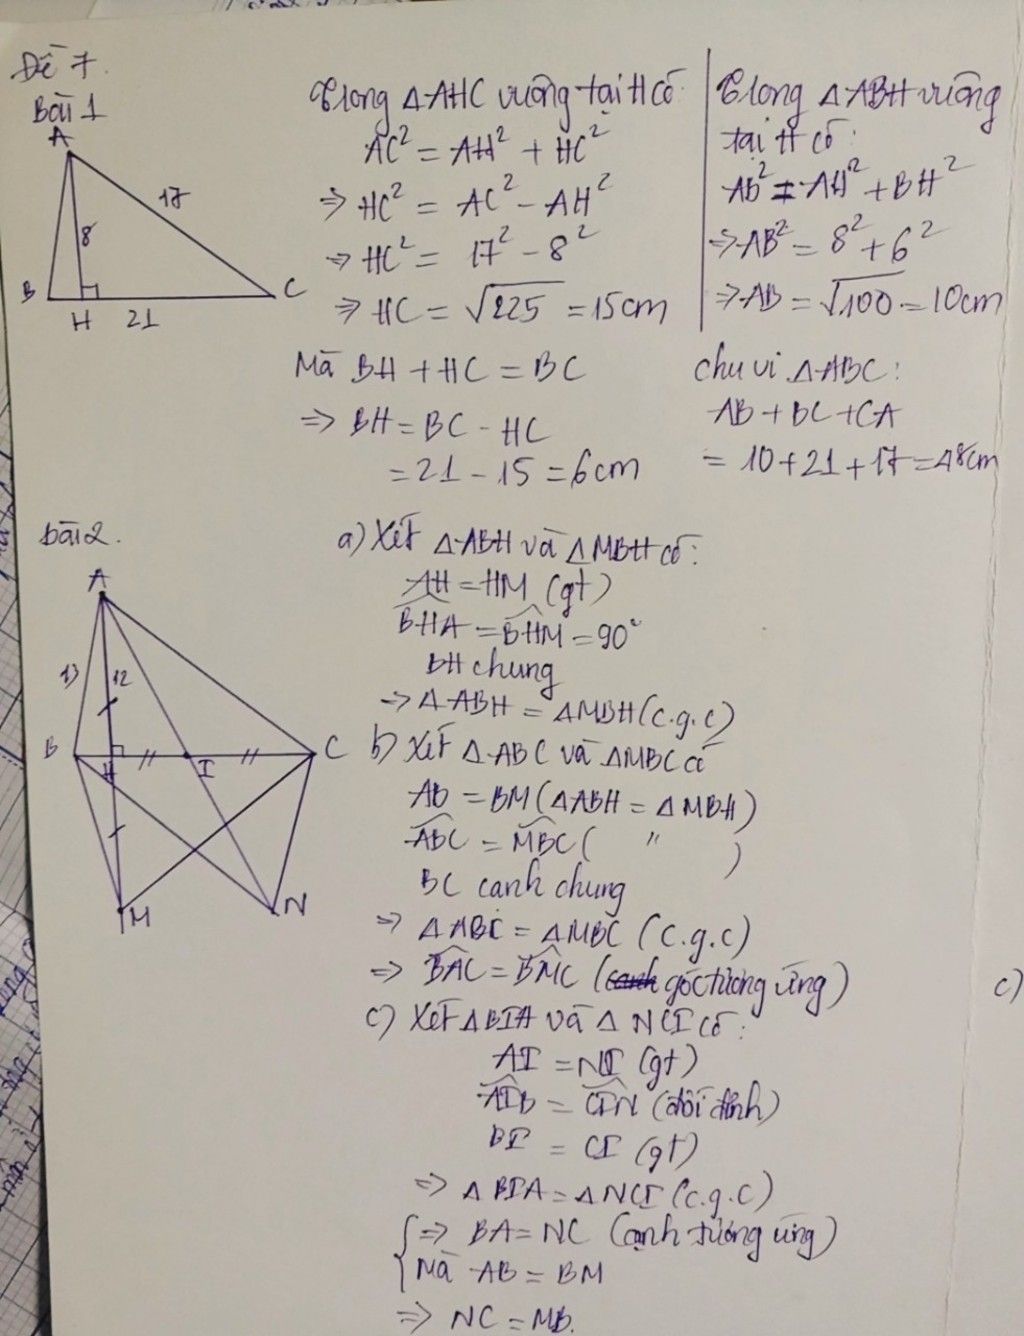 Đề 7.
Bài 1
A
17
8
B
C
H 21
Trong ΔAHC vuông tại H có
AC² = AH² + HC²
⇒ HC² = AC² - AH²
⇒ HC² = 17² - 8²
⇒ HC = √225 = 15cm
Mà BH + HC = BC
⇒ BH = BC - HC
= 21 - 15 = 6cm
Trong ΔABH vuông
tại H có:
AB² = AH² + BH²
⇒ AB² = 8² + 6²
⇒ AB = √100 = 10cm
chu vi ΔABC:
AB + BC + CA
= 10 + 21 + 17 = 48cm
bài 2.
A
13 12
B H I C
M N
a) Xét ΔABH và ΔMBH có:
AH = HM (gt)
BHA = BHM = 90°
BH chung
⇒ ΔABH = ΔMBH (c.g.c)
b) Xét ΔABC và ΔMBC có
AB = BM (ΔABH = ΔMBH)
ABC = MBC ( " )
BC cạnh chung
⇒ ΔABC = ΔMBC (c.g.c)
⇒ BAC = BMC (cạnh góc tương ứng)
c)
c) Xét ΔBIA và Δ NCI có:
AI = NI (gt)
AIB = CIN (đối đỉnh)
BI = CI (gt)
⇒ ΔBIA = ΔNCI (c.g.c)
⇒ BA = NC (cạnh tương ứng)
Mà AB = BM
⇒ NC = MB.